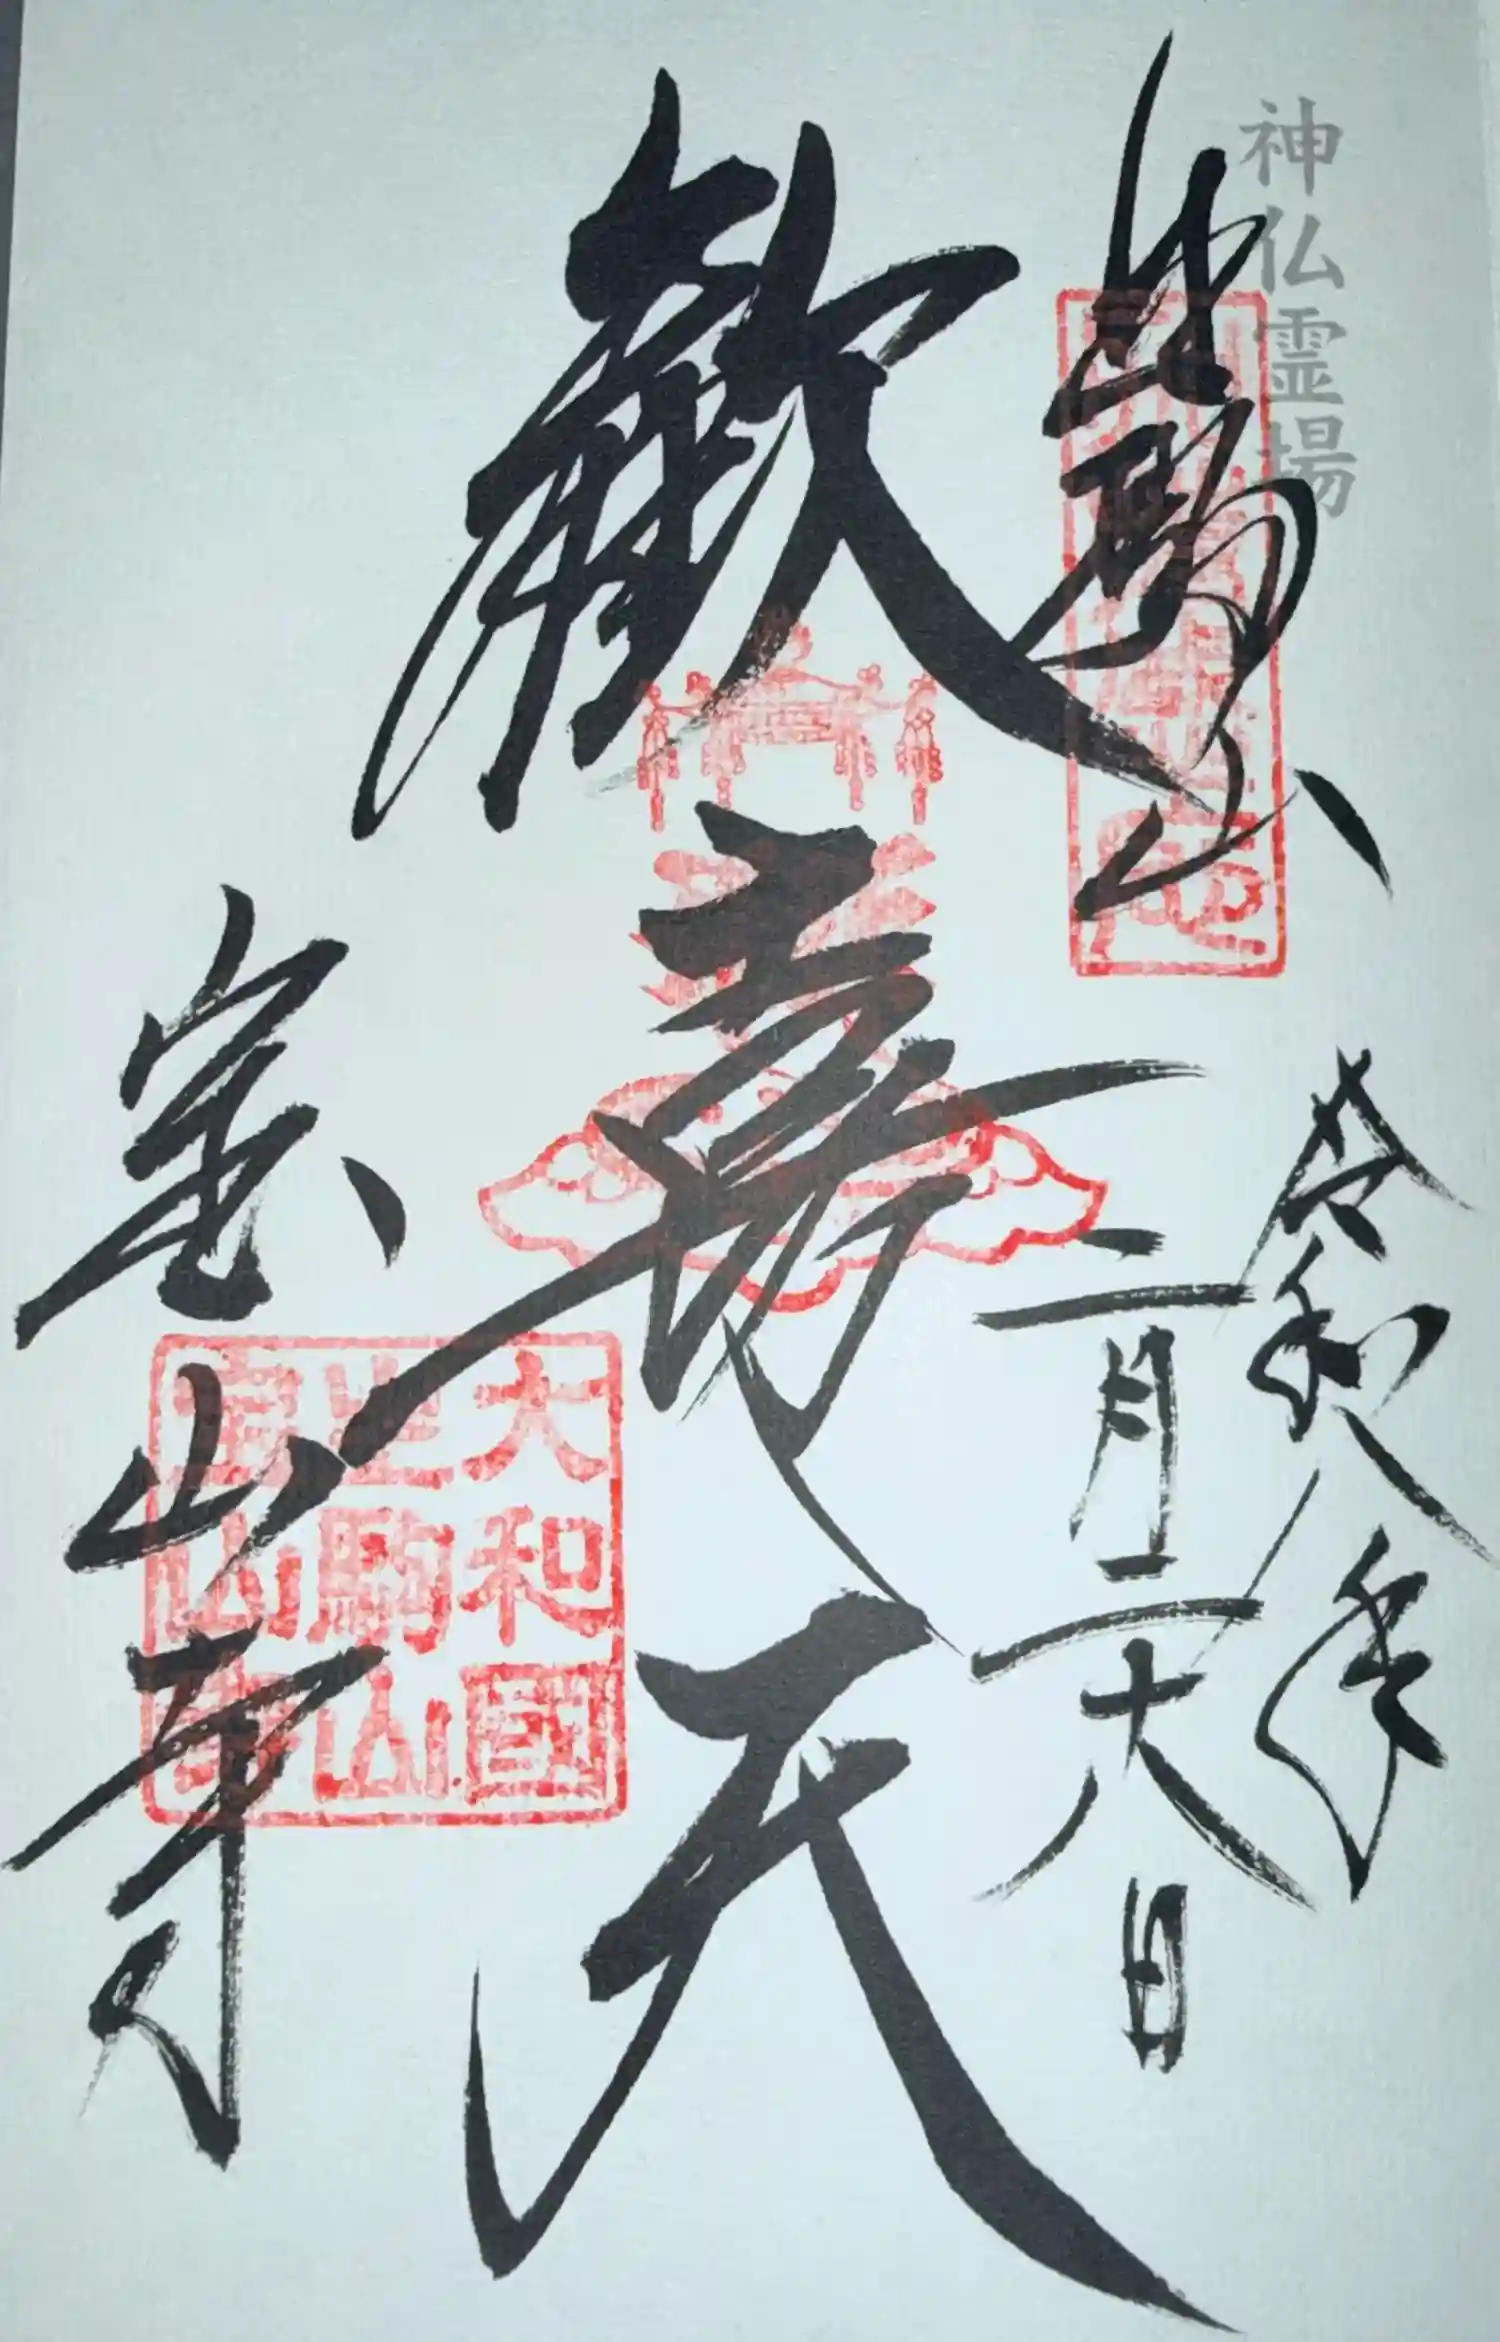 神仏霊場
生駒山
令和八年
二月二十八日
歡喜天
大和國
生駒山
宝山寺